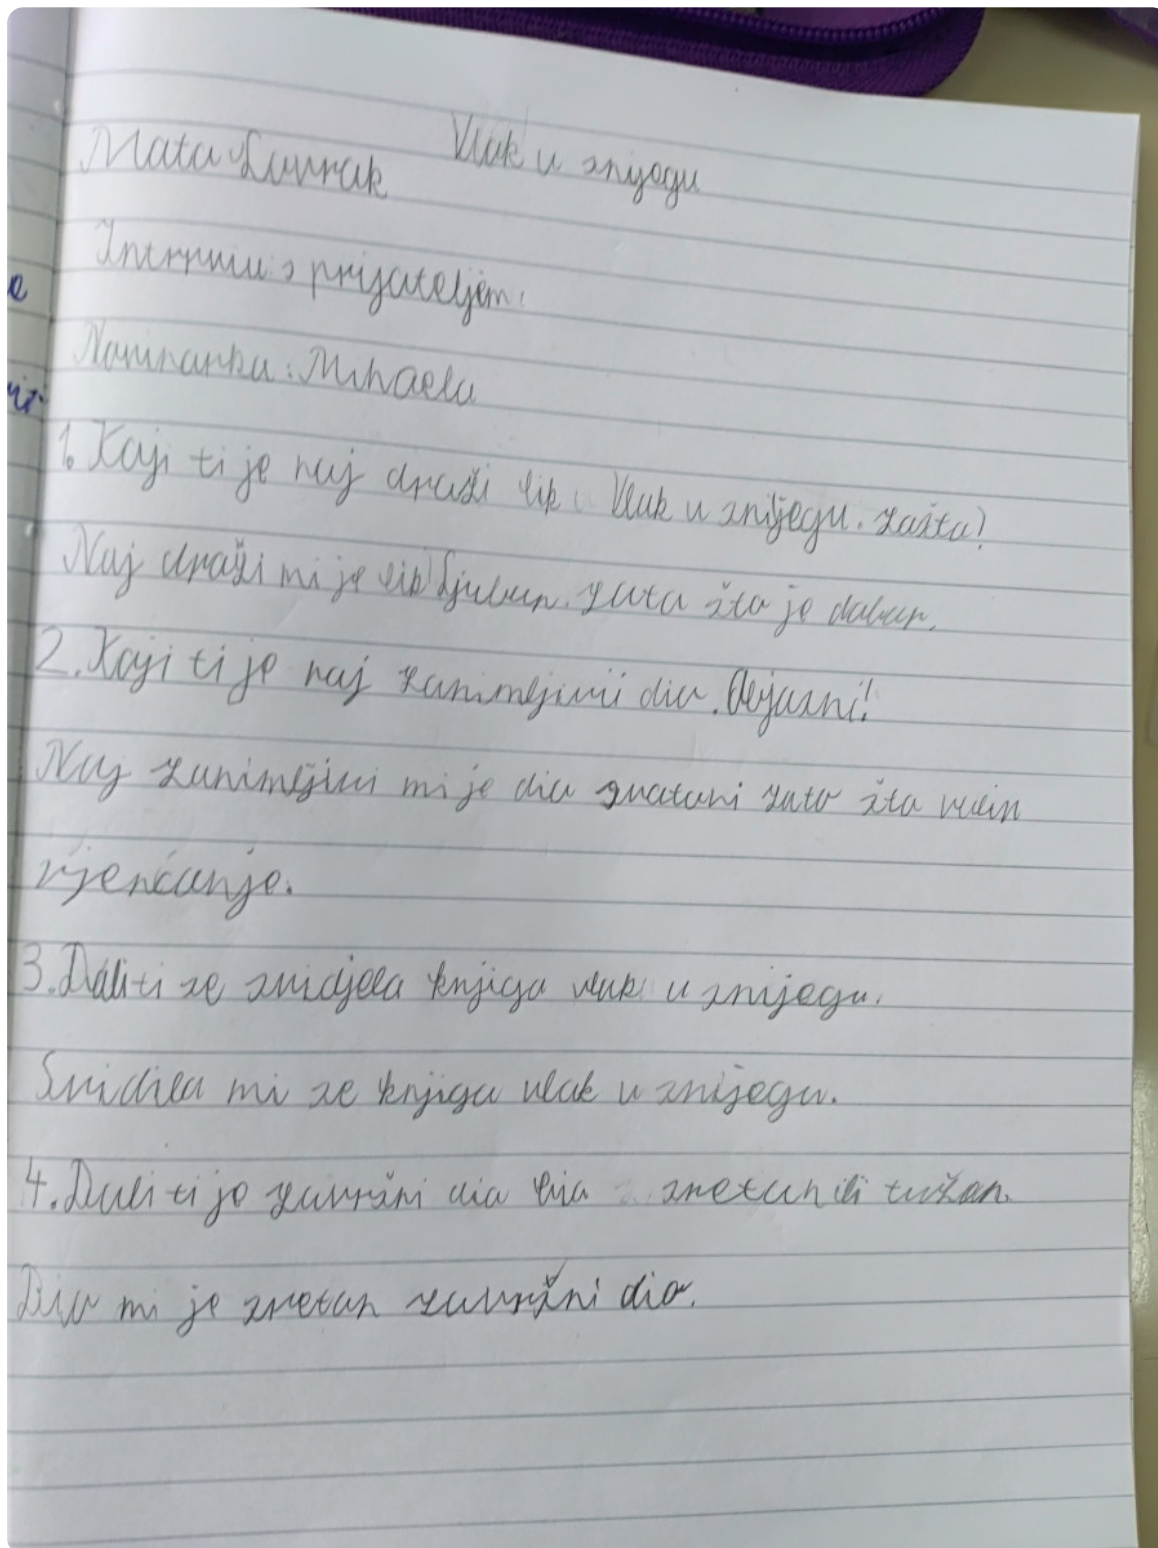 Mato Lovrak Vlak u snijegu
Interviu s prijateljem.
Novinarka: Mihaela
1. Koji ti je naj draži lik Vlak u snijegu. zašto?
Naj draži mi je lik Ljuban. zato što je dobar.
2. Koji ti je naj zanimljivii dio. Objasni!
Naj zanimljivi mi je dio svatovi zato što volin
vjenčanje.
3. Dali ti se svidjela knjiga vlak u snijegu.
Svidila mi se knjiga vlak u snijegu.
4. Dali ti je završni dio bio sretan ili tužan.
Bio mi je sretan završni dio.